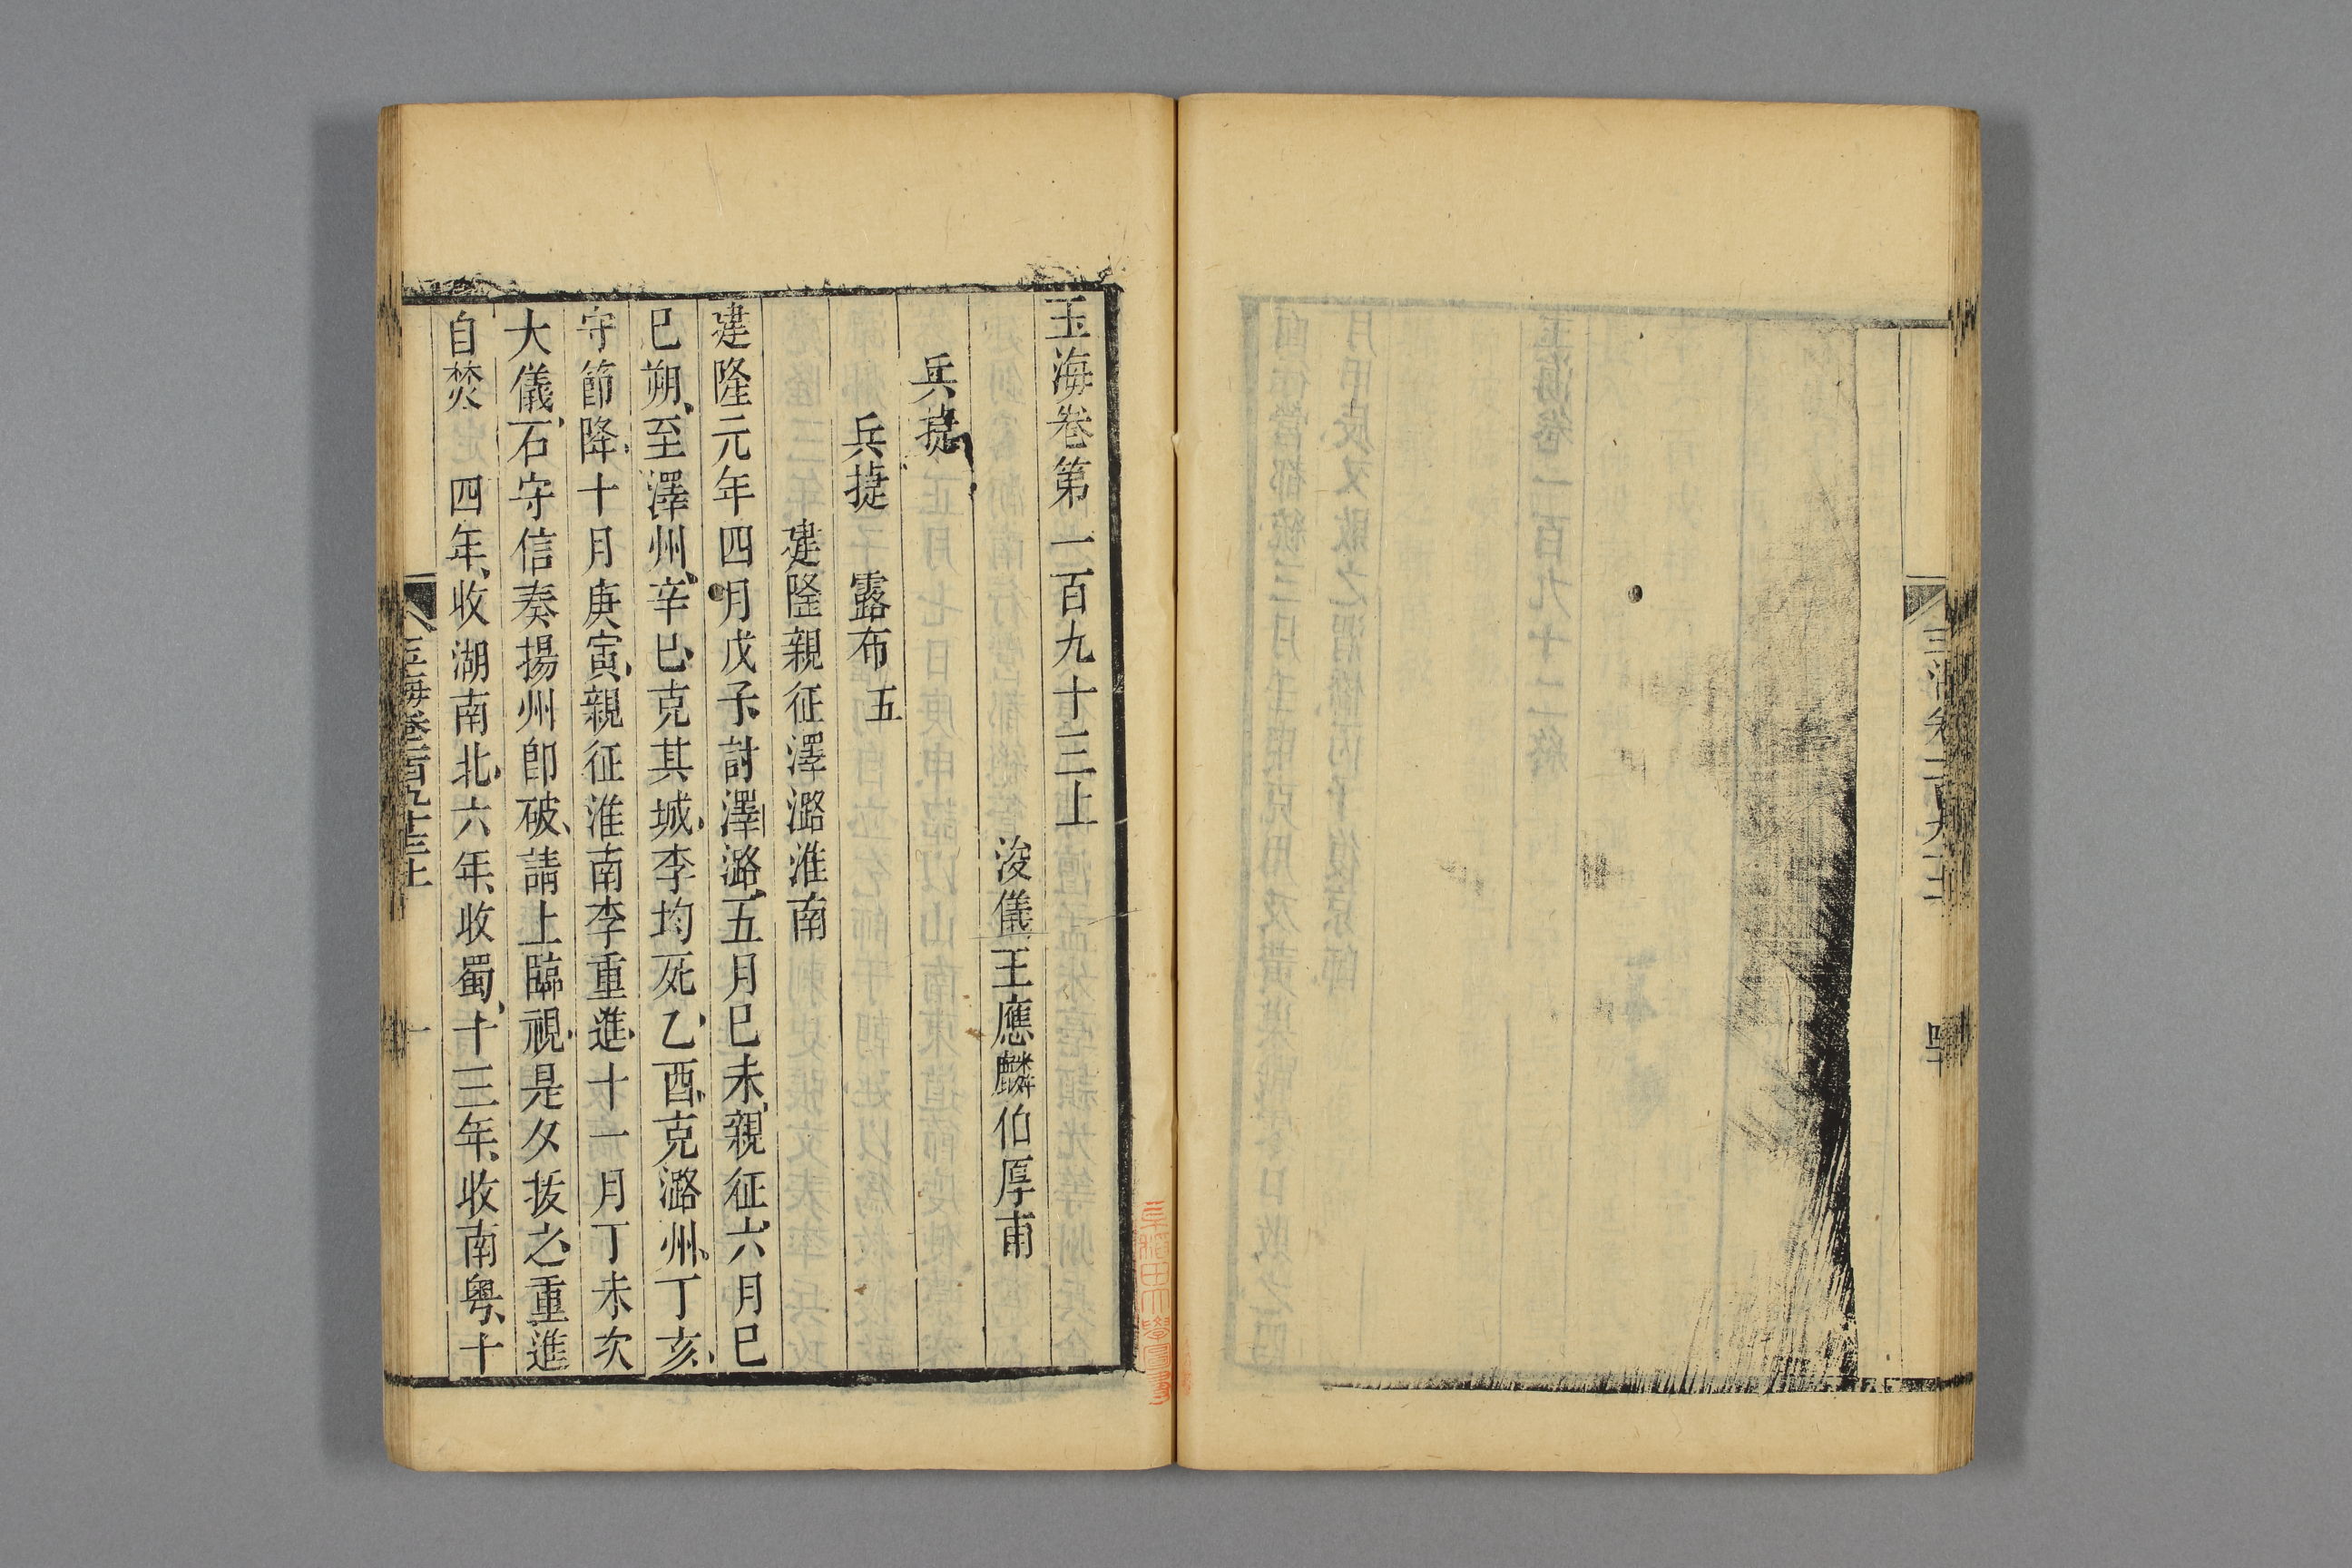 玉海卷第一百九十三上
浚儀王應麟伯厚甫
兵捷
兵捷　露布五
建隆親征澤潞淮南
建隆元年四月戊子討澤潞五月巳未親征六月巳
巳朔至澤州辛巳克其城李均死乙酉克潞州丁亥
守節降十月庚寅親征淮南李重進十一月丁未次
大儀石守信奏揚州卽破請上臨視是夕拔之重進
自焚　四年收湖南北六年收蜀十三年收南粵十
玉海卷一百九十三上　一